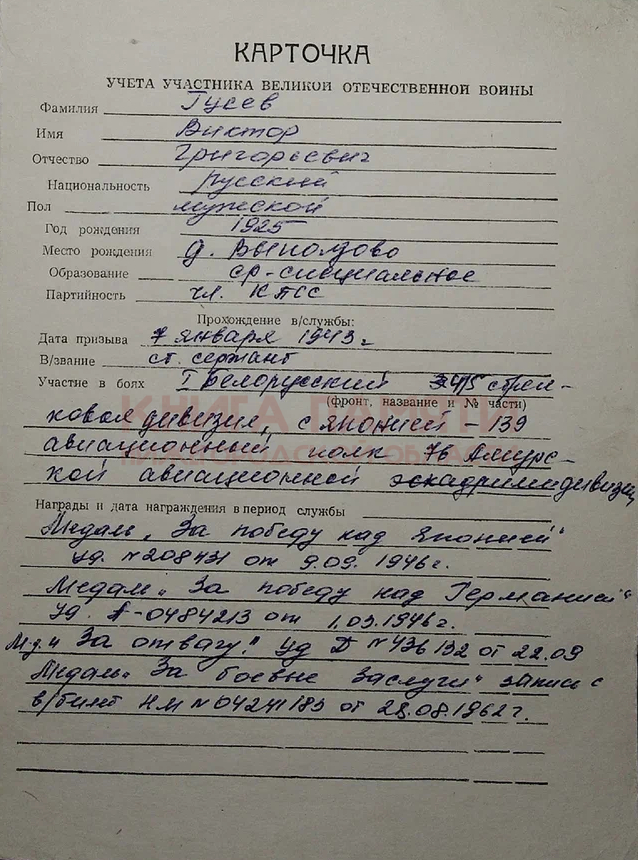 КАРТОЧКА
УЧЕТА УЧАСТНИКА ВЕЛИКОЙ ОТЕЧЕСТВЕННОЙ ВОЙНЫ
Фамилия Гусев
Имя Виктор
Отчество Григорьевич
Национальность русский
Пол мужской
Год рождения 1925
Место рождения д. Выползово
Образование ср-специальное
Партийность чл. КПСС
Прохождение в/службы:
Дата призыва 7 января 1943 г
В/звание ст. сержант
Участие в боях I Белорусский 415 стрел-
(фронт, название и № части)
ковая дивизия, с Японией - 139
авиационный полк 76 Амурс-
кой авиационной эскадрили дивизии
КНИГА ПАМЯТИ
Награды и дата награждения в период службы
Медаль „За победу над Японией"
уд. №208431 от 9.09. 1946г.
Медаль „За победу над Германией"
уд. А-0484213 от 1.03.1946г.
М-д и За отвагу" уд Д №436132 от 22.09
Медаль „За боевые заслуги" запись с
в/билет НМ №04241183 от 28.08.1962г.